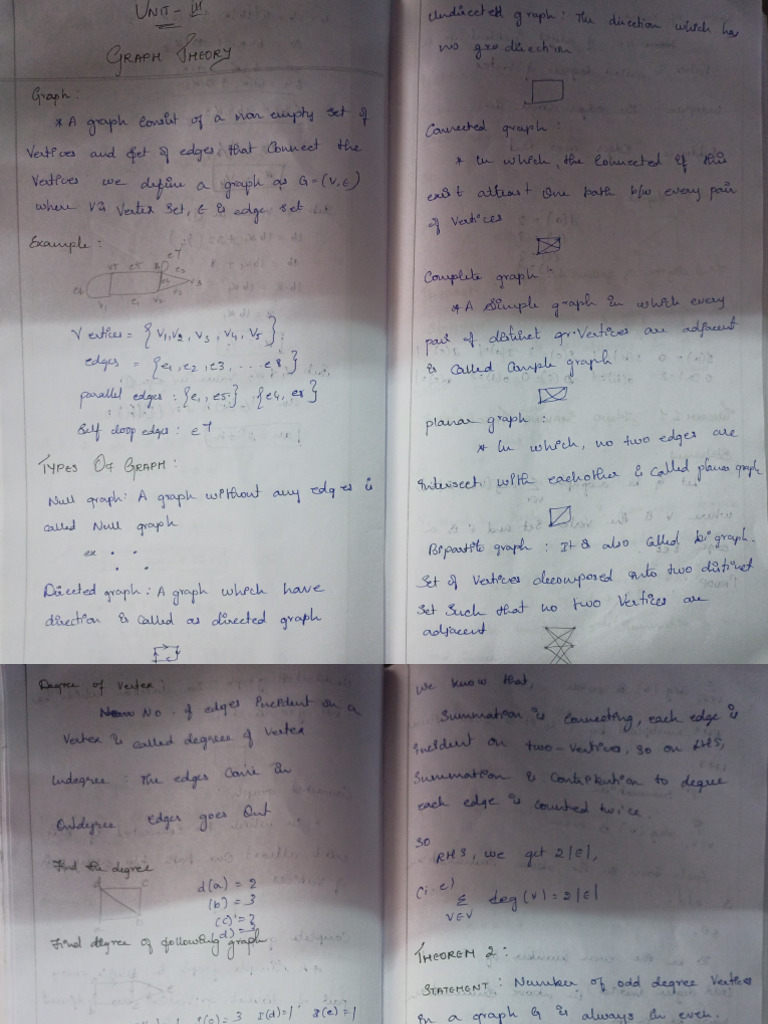 UNIT - III
GRAPH THEORY
Graph:
* A graph consist of a non empty set of
vertices and set of edges that connect the
vertices we define a graph as G = (V, E)
where V is vertex set, E is edge set
Example:
V5 e5 e7
V1 e1 V2 V3
Vertices = {V1, V2, V3, V4, V5}
edges = {e1, e2, e3, ... e8}
parallel edges: {e1, e5} {e4, e8}
Self loop edges: e7
TYPES OF GRAPH:
Null graph: A graph without any edges is
called Null graph
ex
Directed graph: A graph which have
direction is called as directed graph
Undirected graph: The direction which has
no direction
Connected graph:
* In which, the connected if this
exist atleast one path b/w every pair
of vertices
Complete graph
* A simple graph in which every
pair of distinct vertices are adjacent
is called Comple graph
planar graph:
* In which, no two edges are
intersect with eachother is called planar graph
Bipartite graph: It is also called bi graph.
Set of vertices decomposed into two distinct
set such that no two vertices are
adjacent
Degree of vertex:
No. of edges incident on a
vertex is called degree of vertex
Indegree: The edges come in
Outdegree edges goes out
Find the degree
d(a) = 2
(b) = 3
(c) = 3
(d) = 3
Find degree of following graph
(c) = 3 (d) = 1 (e) = 1
we know that,
Summation is connecting, each edge is
incident on two-vertices, so on LHS,
summation is contribution to degree
each edge is counted twice.
so
RHS, we get 2|E|,
(i.e)
Σ deg(v) = 2|E|
V∈V
THEOREM 2:
STATEMENT: Number of odd degree vertices
in a graph G is always in even.